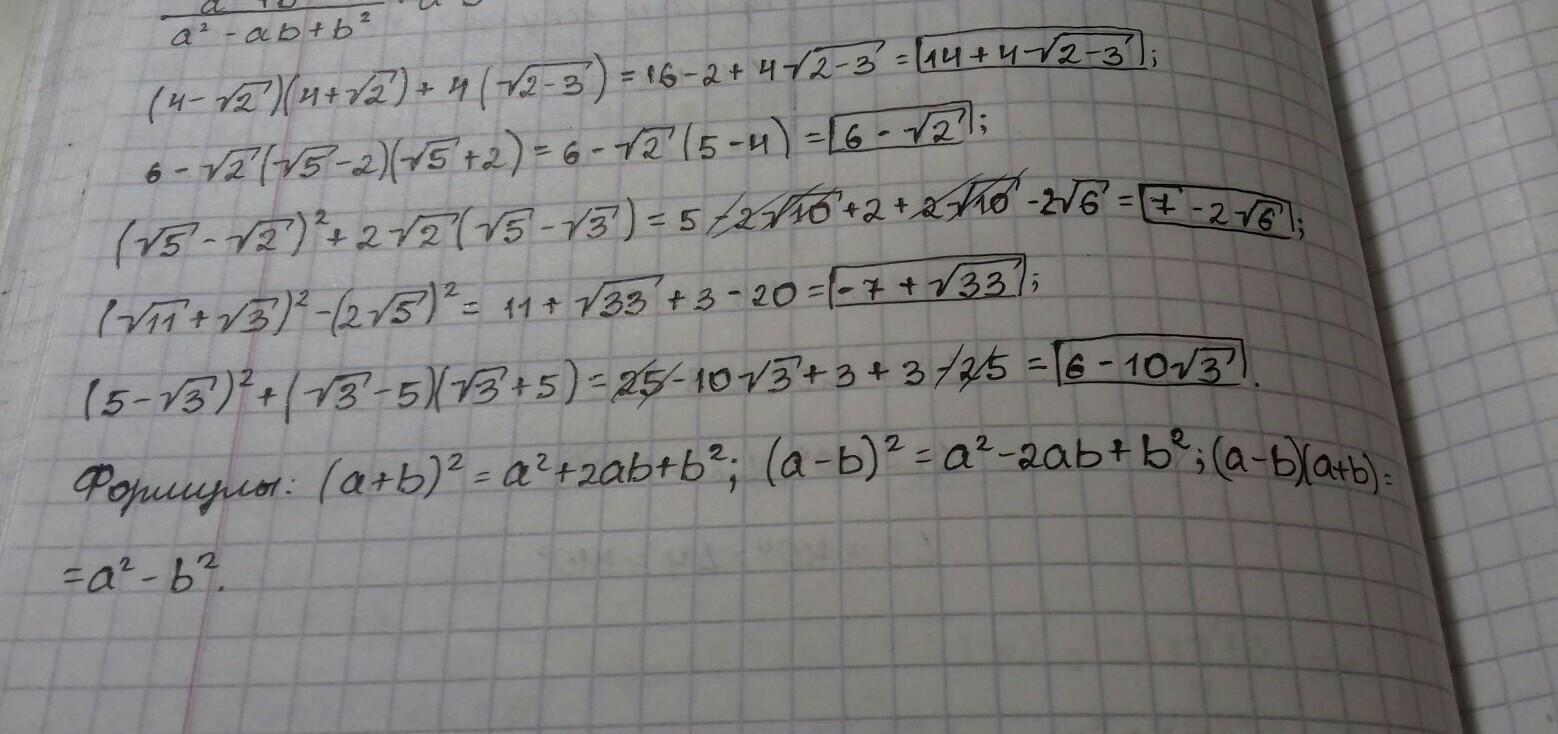 a² - ab + b²
(4-√2)(4+√2) + 4(√2-3) = 16 - 2 + 4√2-3 = 14 + 4√2-3;
6 - √2(√5-2)(√5+2) = 6 - √2(5-4) = 6 - √2;
(√5 - √2)² + 2√2(√5 - √3) = 5 - 2√10 + 2 + 2√10 - 2√6 = 7 - 2√6;
(√11 + √3)² - (2√5)² = 11 + √33 + 3 - 20 = -7 + √33;
(5-√3)² + (√3-5)(√3+5) = 25 - 10√3 + 3 + 3 - 25 = 6 - 10√3.
Формулы: (a+b)² = a² + 2ab + b²; (a-b)² = a² - 2ab + b²; (a-b)(a+b) =
= a² - b².